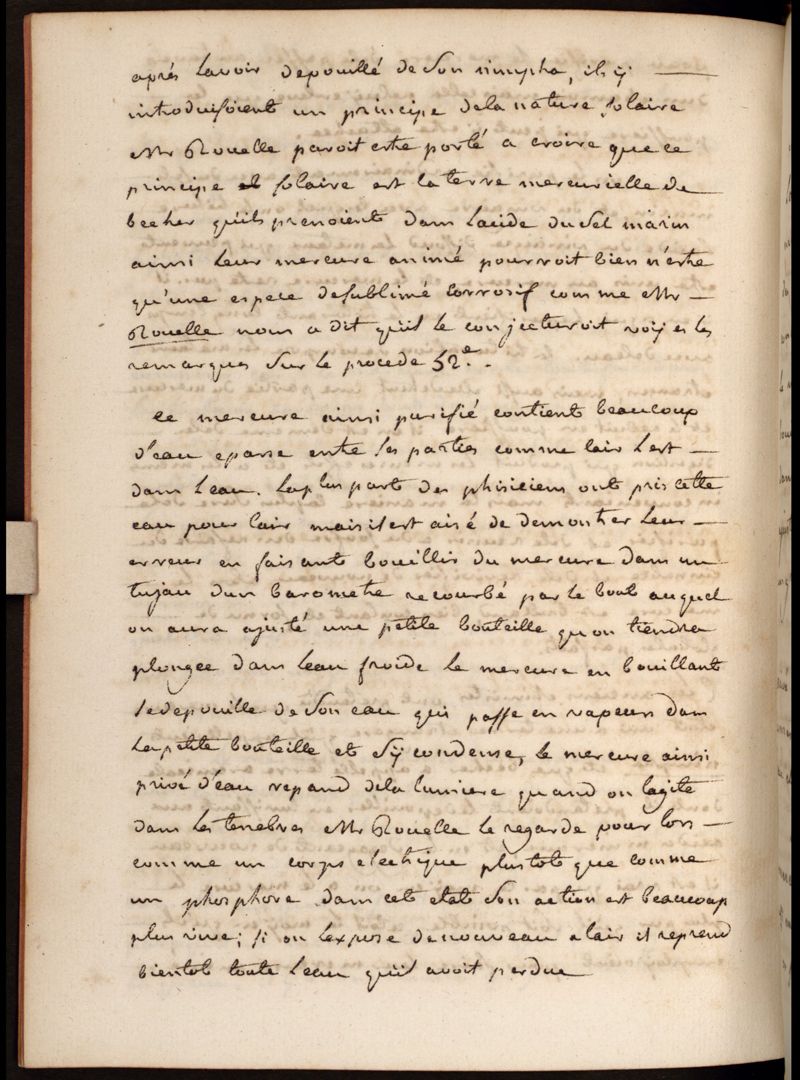 aprés lavoir depouillé de son nimpha, ils ÿ
introduisoient un principe dela nature solaire
Mr Rouelle paroit estre porté a croire que ce
principe solaire est la terre mercurielle de
becher quils prenoient dans lacide du sel marin
ainsi leur mercure animé pourroit bien n'estre
qu'une espece desublimé corrosif comme Mr
Rouelle nous a dit quil le conjecturoit voÿes les
remarques sur le procede 52e.
ce mercure ainsi purifié contient beaucoup
d'eau eparse entre ses parties comme lair lest
dans leau. laplus part des phisiciens ont pris cette
eau pour lair mais il est aisé de demontrer leur
erreur en faisant bouillir du mercure dans un
tujau dun barometre recourbé par le bout auquel
on aura ajusté une petite bouteille qu on tiendra
plongée dans leau froide le mercure en bouillant
se depouille de son eau qui passe en vapeurs dans
la petite bouteille et s'ÿ condense, le mercure ainsi
privé d'eau repand dela lumiere quand on lagite
dans les tenebres Mr Rouelle le regarde pour lors
comme un corps electrique plustots que comme
un phosphore dans cet etat son action est beaucoup
plus vive; si on lexpose denouveau a lair il reprend
bientots toute leau quil avoit perdue